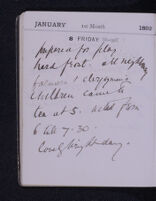 JANUARY 1st Month 1892
8 FRIDAY
prepared for play
hard frost. all neighboring
farmers & clergymen's
children came to
tea at 5. acted from
6 till 7.30.
Lovely bright day.